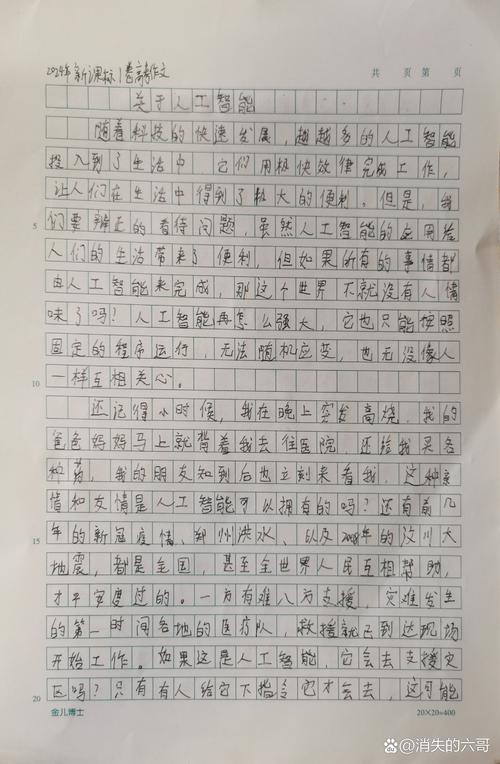 2024年新课标1卷高考作文
共 页 第 页
关于人工智能
随着科技的快速发展，越越多的人工智能
投入到了生活中 它们用极快效律完成工作，
让人们在生活中得到了极大的便利。但是，我
们要辨正的看待问题，虽然人工智能的应用给
5
人们的生活带来了便利，但如果所有的事情都
由人工智能来完成，那这个世界不就没有人情
味了吗？人工智能再怎么强大，它也只能按照
固定的程序运行，无法随机应变，也无没像人
一样互相关心。
10
还记得小时候，我在晚上突发高烧，我的
爸爸妈妈马上就背着我去往医院，还给我买各
种药，我的朋友知到后也立刻来看我，这种亲
情和友情是人工智能可以拥有的吗？还有前几
年的新冠疫情、郑州洪水、以及2008年的汶川大
15
地震，都是全国，甚至全世界人民互相帮助，
才平安度过的。一方有难八方支援，灾难发生
的第一时间各地的医疗队，救援就已到达现场
开始工作。如果这是人工智能，它会去支援灾
区吗？只有有人给它下指令它才会去，这可能
20
金儿博士
20×20=400
@消失的六哥